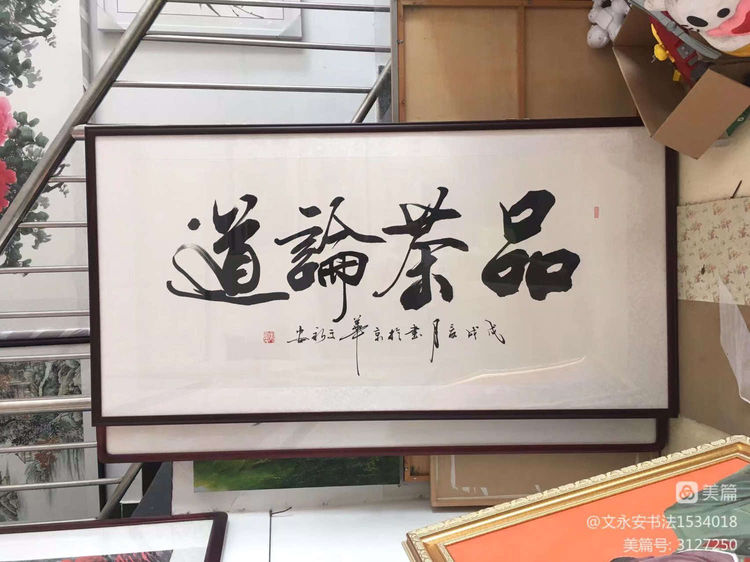 品茶論道
戊戌夏月書於京華文永安
美篇
@文永安书法1534018
美篇号: 3127250